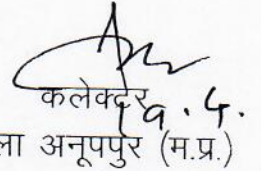 कलेक्टर
ला अनूपपुर (म.प्र.)